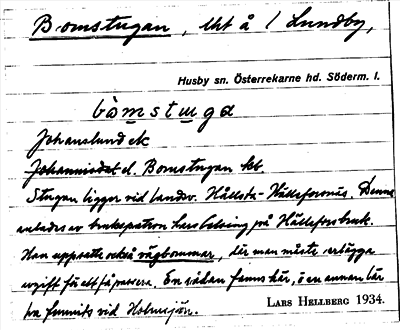 Bomstugan, lht å 1 Lundby,
Husby sn. Österrekarne hd. Söderm. l.
bòmstuga
Johanslund ek
Johannisdal el. Bomstugan kbl.
Stugan ligger vid landsv. Hållsta - Hälleforsnäs. Denna
anlades av brukspatron Celsing på Hällefors bruk.
Han uppsatte också vägbommar, där man måste erlägga
avgift för att få passera. En sådan fanns här, ö en annan lär
ha funnits vid Holmsjön.
LARS HELLBERG 1934.